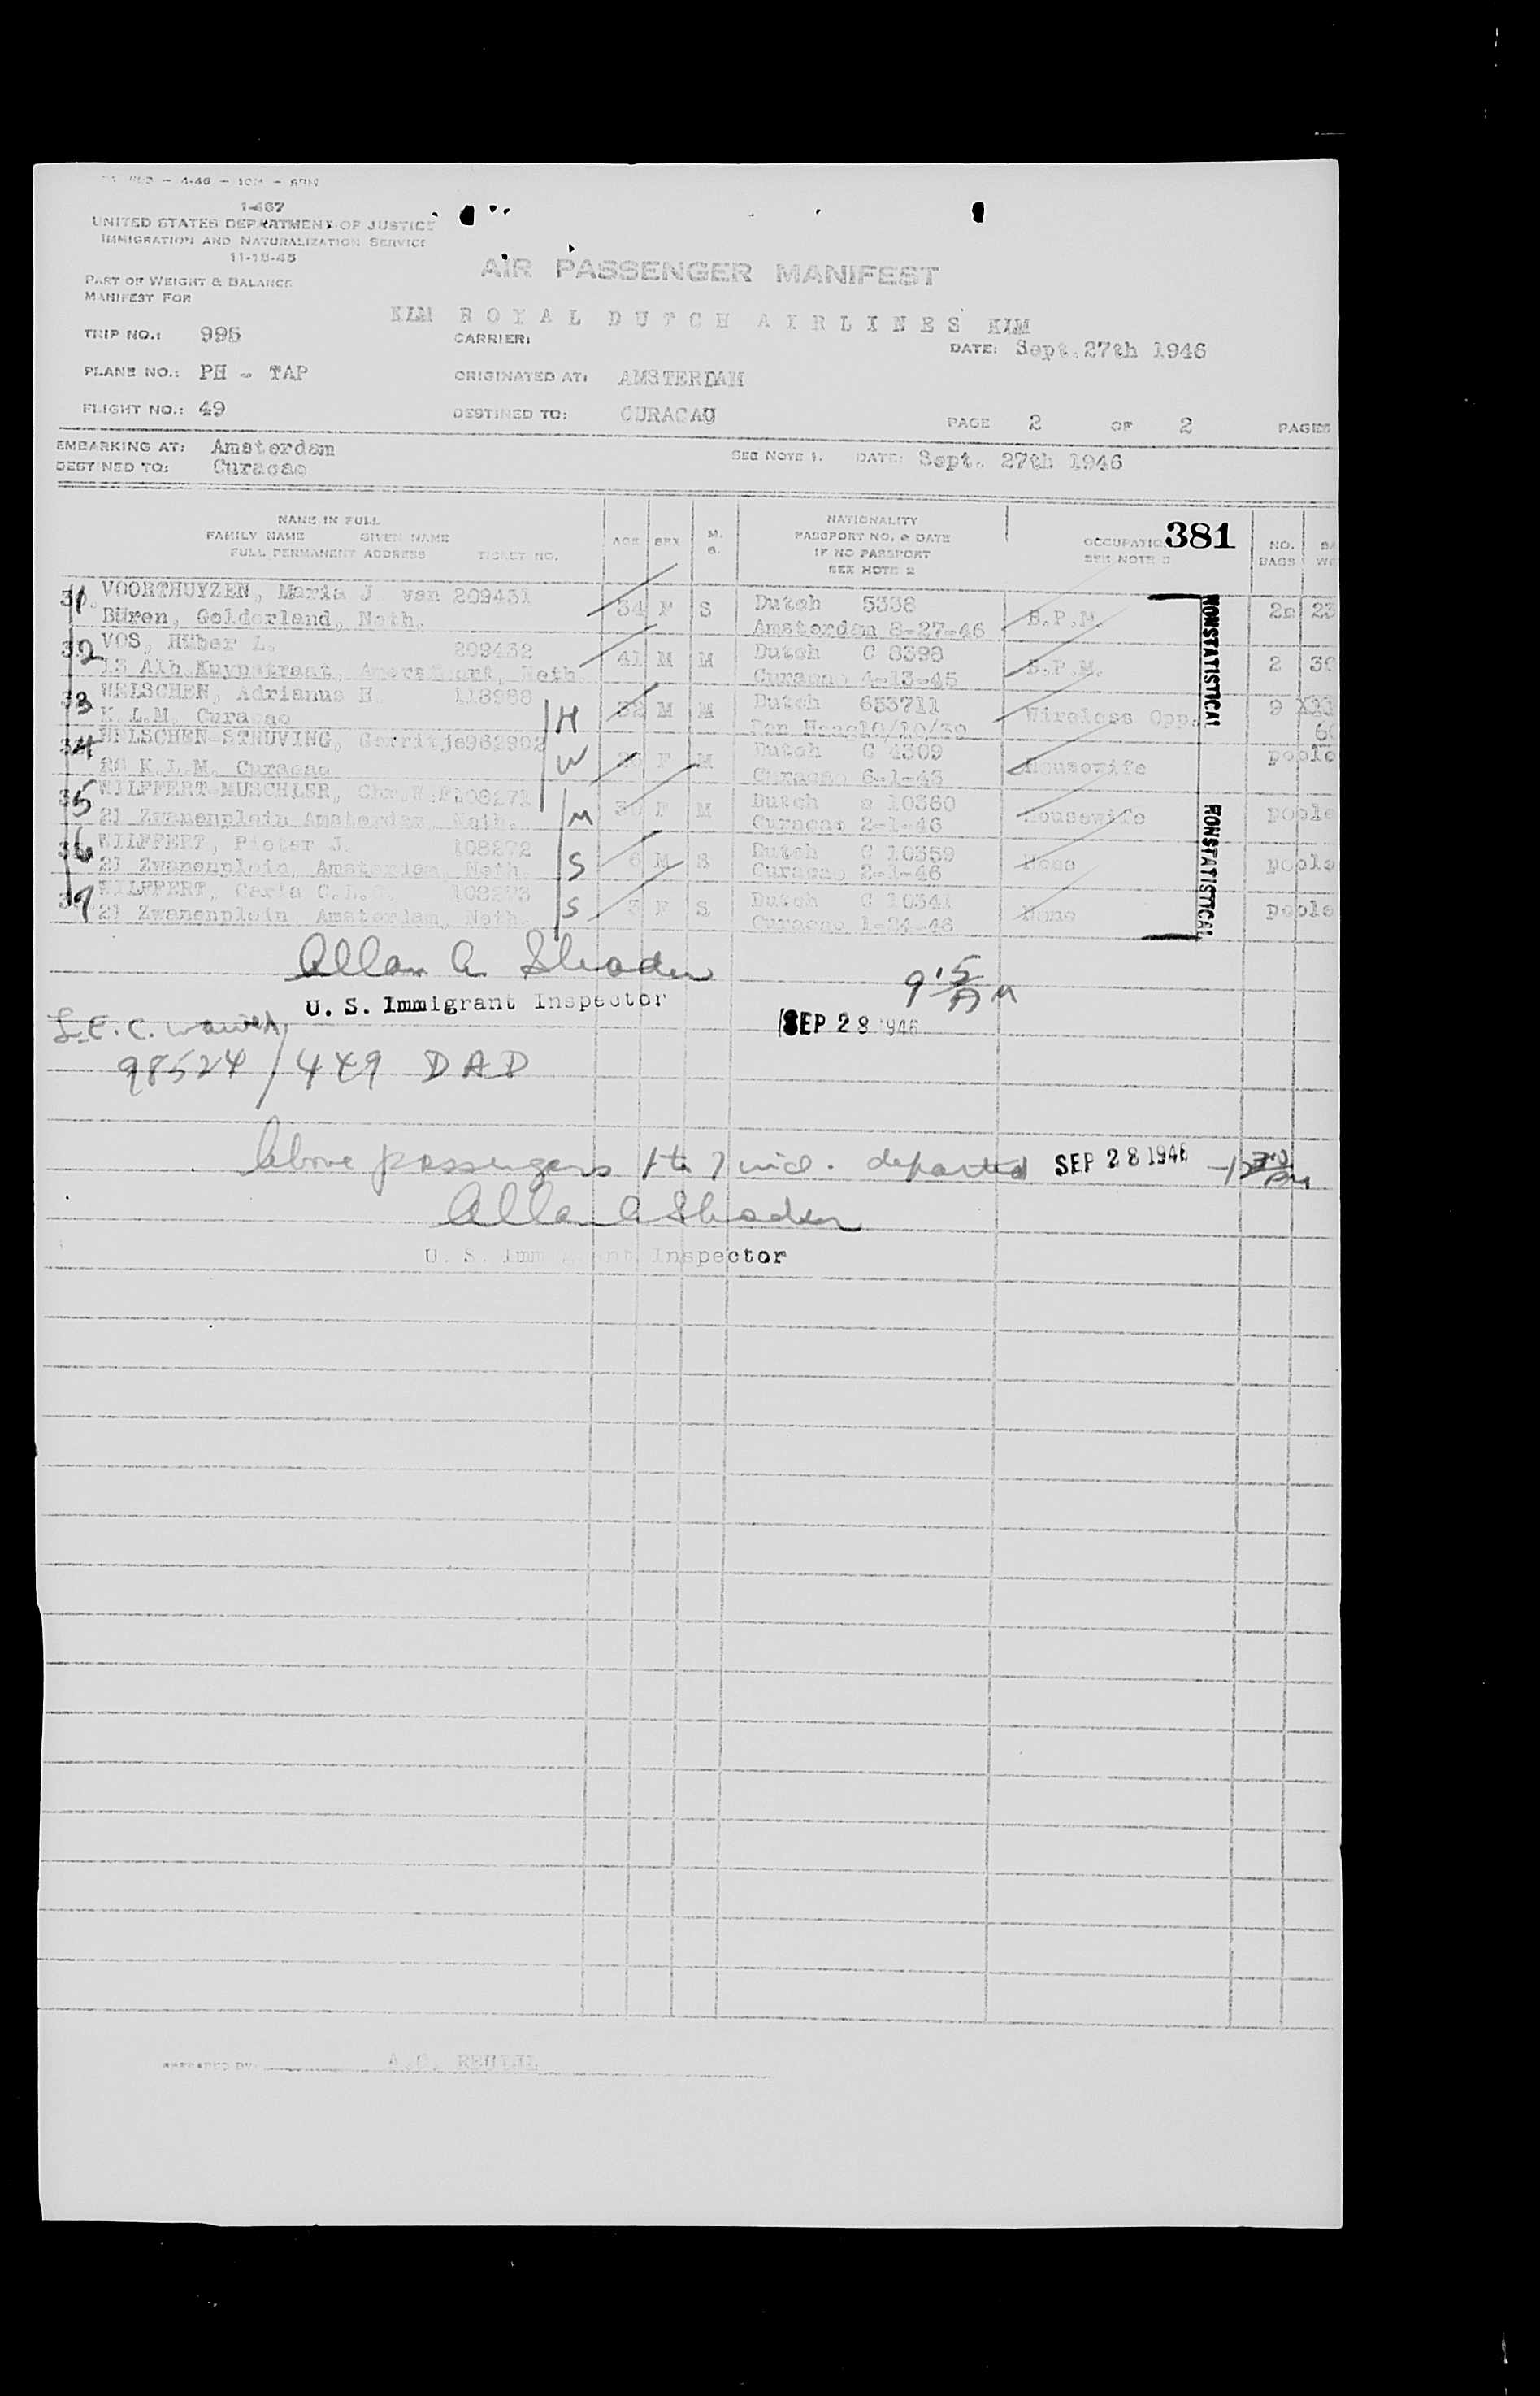 1-467
UNITED STATES DEPARTMENT OF JUSTICE
IMMIGRATION AND NATURALIZATION SERVICE
11-15-45
AIR PASSENGER MANIFEST
PART OF WEIGHT & BALANCE
MANIFEST FOR
KLM ROYAL DUTCH AIRLINES KLM
TRIP NO.: 995 CARRIER: DATE: Sept.27th 1946
PLANE NO.: PH - TAP ORIGINATED AT: AMSTERDAM
FLIGHT NO.: 49 DESTINED TO: CURACAO PAGE 2 OF 2 PAGES
EMBARKING AT: Amsterdam SEE NOTE 1. DATE: Sept. 27th 1946
DESTINED TO: Curacao
NAME IN FULL
FAMILY NAME GIVEN NAME
FULL PERMANENT ADDRESS TICKET NO.
AGE SEX M. S.
NATIONALITY
PASSPORT NO. & DATE
IF NO PASSPORT
SEE NOTE 2
381
SEE NOTE 2
NO. BAGS
31. VOORTHUYZEN, Maria J van 209431 34 F S Dutch 5338 B.P.M. 23
Büren, Gelderland, Neth. Amsterdam 8-27-46
32 VOS, Huber L. 209432 41 M M Dutch C 8398 B.P.M. 2
Neth. Curacao 4-13-45
33 WELSCHEN, Adrianus H 118988 H 32 M M Dutch 653711 Wireless Opp. 9
K.L.M. Curacao Den Haag10/10/39
34 WELSCHEN-STRUVING, Gerritje962902 W F M Dutch C 4309 Housewife
K.L.M. Curacao Curacao 6-1-43
35 WILFFERT-MUSCHLER, 108271 M F M Dutch 10360 Housewife
21 Zwanenplein Amsterdam, Neth. Curacao 2-1-46
36 WILFFERT, Pieter J. 108272 S 6 M S Dutch C 10359 None
21 Zwanenplein, Amsterdam, Neth. Curacao 2-1-46
37 WILFFERT, Carla 108273 S 3 F S Dutch C 10341 None
21 Zwanenplein, Amsterdam, Neth. Curacao 1-24-46
NONSTATISTICAL
NONSTATISTICAL
Allan A Shader
U. S. Immigrant Inspector
9 15 AM
SEP 28 1946
98524/449 DAD
Above passengers 1 to 7 incl. departed SEP 28 1946
Allan A Shader
U. S. Immigrant Inspector
PREPARED BY: